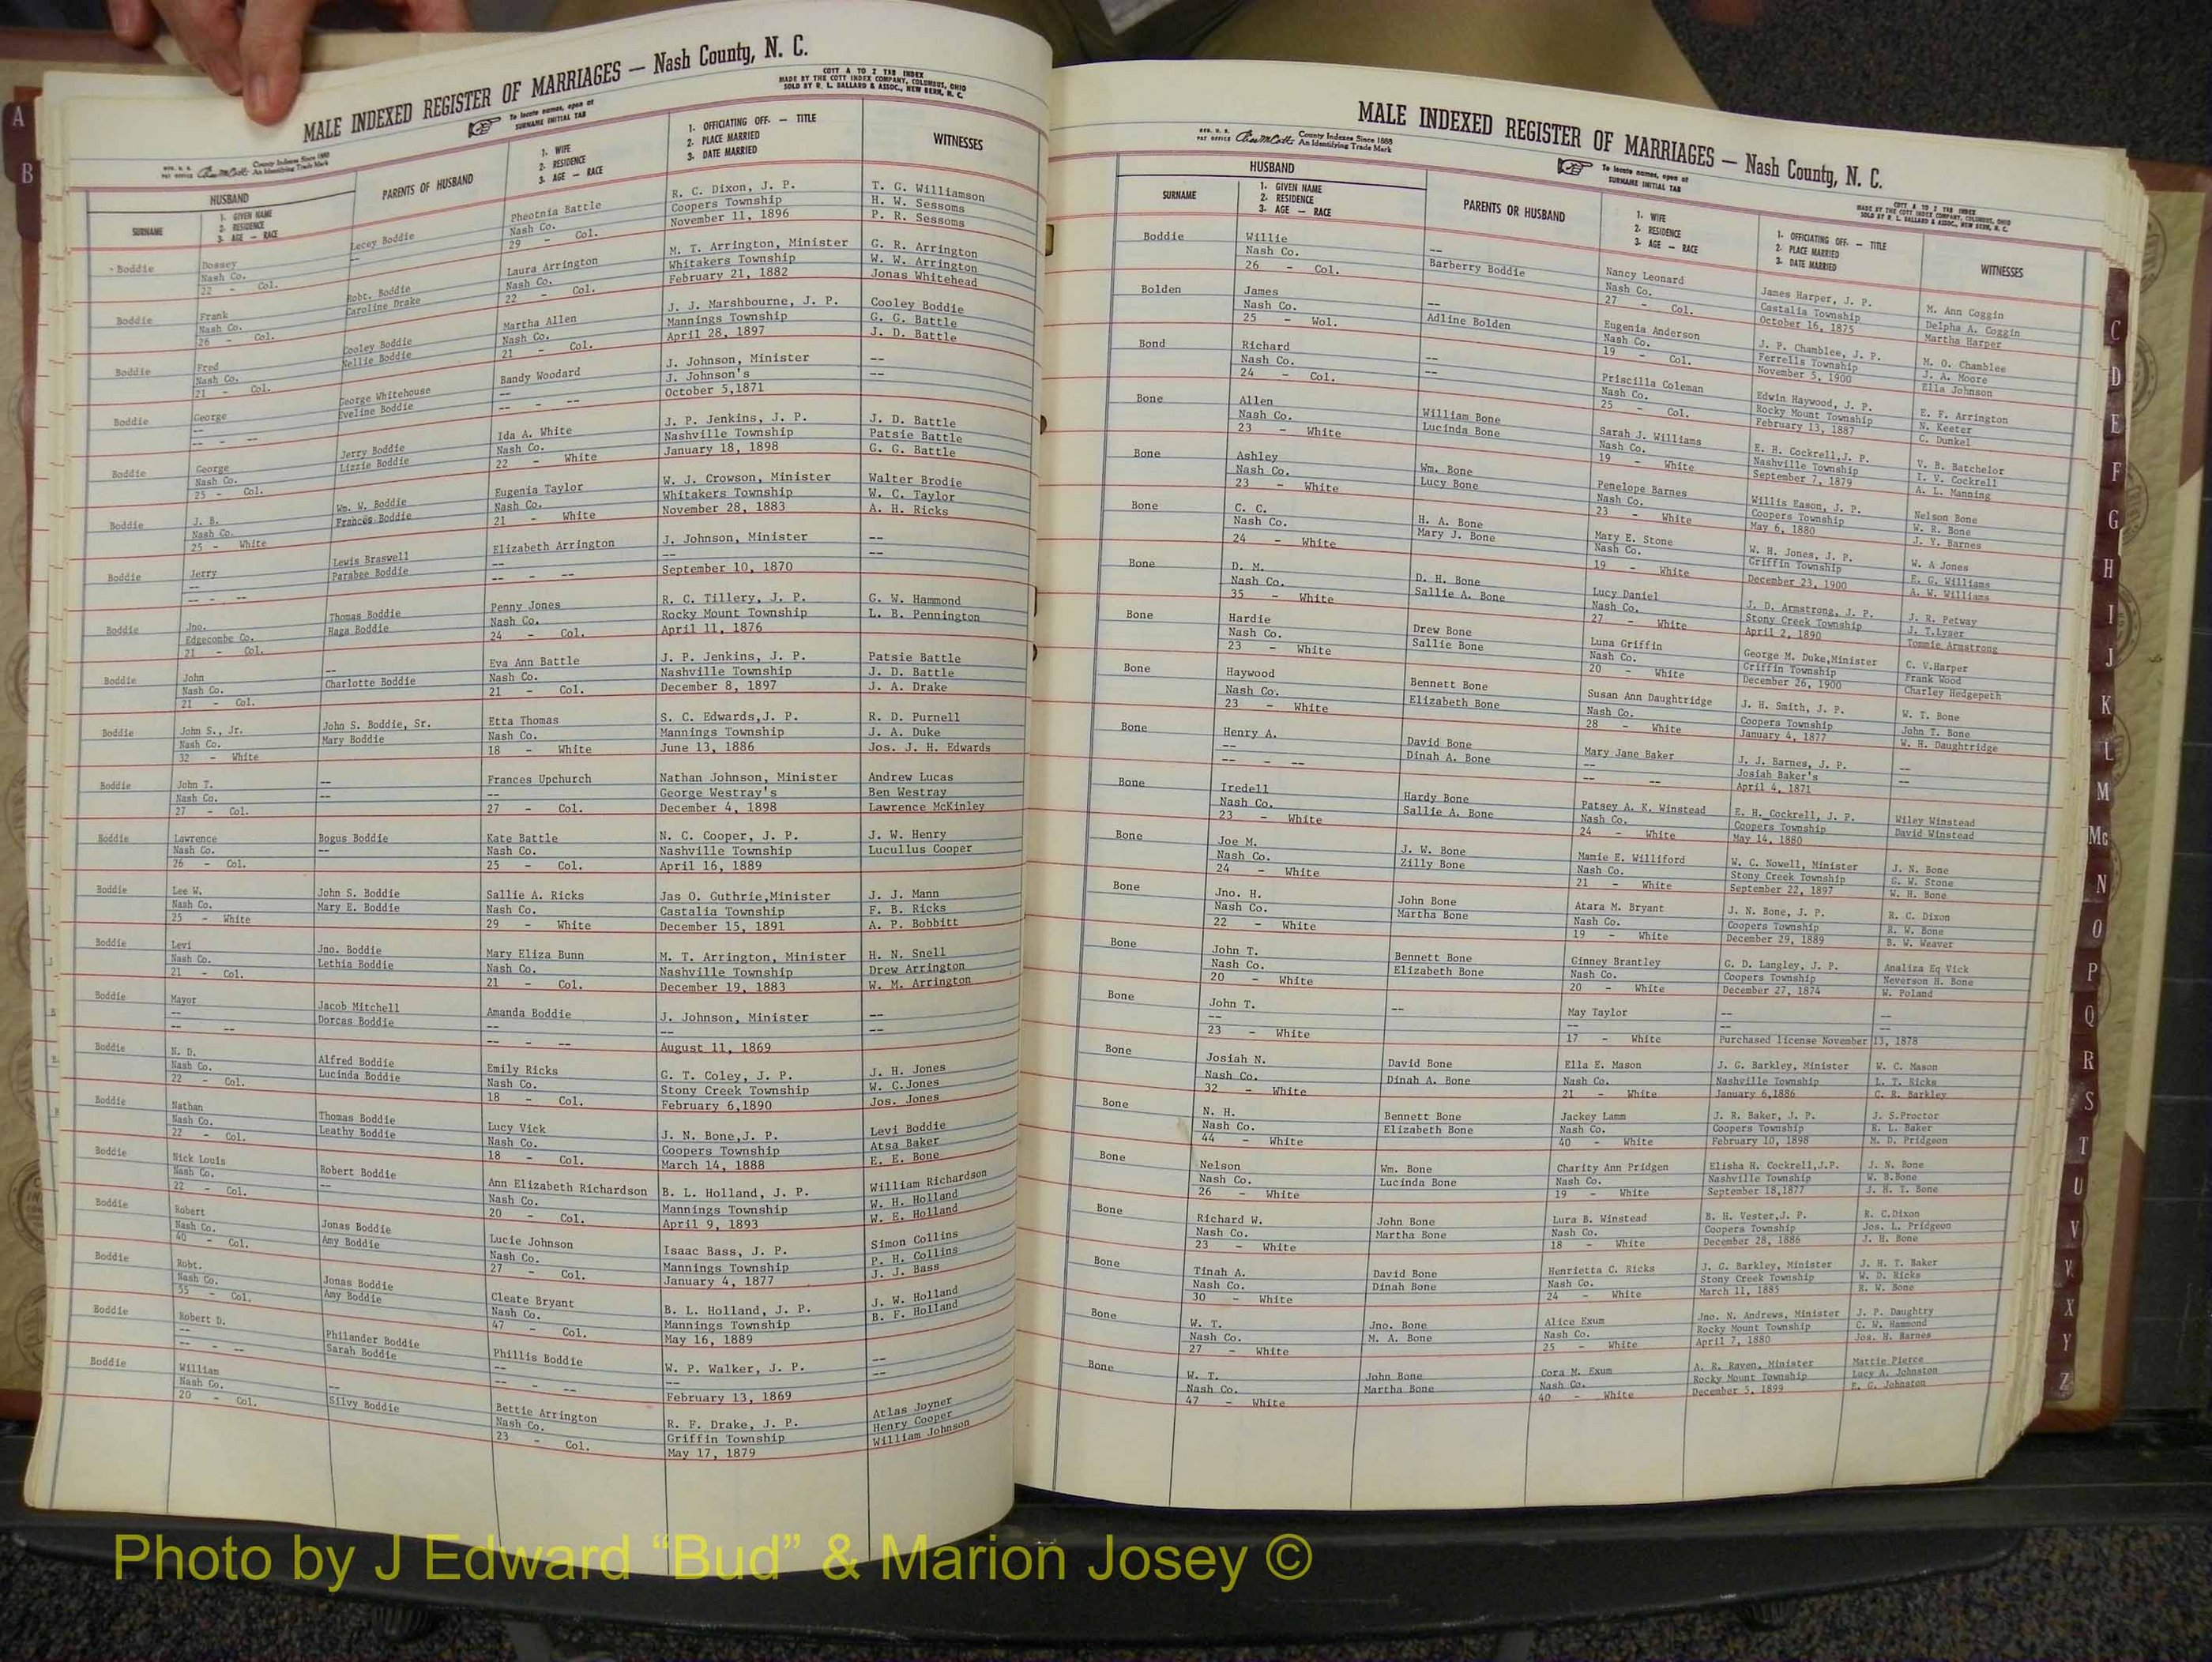 MALE INDEXED REGISTER OF MARRIAGES — Nash County, N. C.
COTT A TO Z TAB INDEX
MADE BY THE COTT INDEX COMPANY, COLUMBUS, OHIO
SOLD BY R. L. BALLARD & ASSOC., NEW BERN, N. C.
To locate names, open at
SURNAME INITIAL TAB
County Indexes Since 1888
An Identifying Trade Mark
HUSBAND
SURNAME
1. GIVEN NAME
2. RESIDENCE
3. AGE — RACE
PARENTS OF HUSBAND
1. WIFE
2. RESIDENCE
3. AGE — RACE
1. OFFICIATING OFF. — TITLE
2. PLACE MARRIED
3. DATE MARRIED
WITNESSES
Boddie Dossey Lecey Boddie Pheotnia Battle R. C. Dixon, J. P. T. G. Williamson
Nash Co. -- Nash Co. Coopers Township H. W. Sessoms
22 - Col. 29 - Col. November 11, 1896 P. R. Sessoms
Boddie Frank Robt. Boddie Laura Arrington M. T. Arrington, Minister G. R. Arrington
Nash Co. Caroline Drake Nash Co. Whitakers Township W. W. Arrington
26 - Col. 22 - Col. February 21, 1882 Jonas Whitehead
Boddie Fred Cooley Boddie Martha Allen J. J. Marshbourne, J. P. Cooley Boddie
Nash Co. Nellie Boddie Nash Co. Mannings Township G. G. Battle
21 - Col. 21 - Col. April 28, 1897 J. D. Battle
Boddie George George Whitehouse Bandy Woodard J. Johnson, Minister --
-- Eveline Boddie -- J. Johnson's --
-- - -- -- - -- October 5,1871
Boddie George Jerry Boddie Ida A. White J. P. Jenkins, J. P. J. D. Battle
Nash Co. Lizzie Boddie Nash Co. Nashville Township Patsie Battle
25 - Col. 22 - White January 18, 1898 G. G. Battle
Boddie J. B. Wm. W. Boddie Eugenia Taylor W. J. Crowson, Minister Walter Brodie
Nash Co. Frances Boddie Nash Co. Whitakers Township W. C. Taylor
25 - White 21 - White November 28, 1883 A. H. Ricks
Boddie Jerry Lewis Braswell Elizabeth Arrington J. Johnson, Minister --
-- Parabee Boddie -- -- --
-- - -- -- - -- September 10, 1870
Boddie Jno. Thomas Boddie Penny Jones R. C. Tillery, J. P. G. W. Hammond
Edgecombe Co. Haga Boddie Nash Co. Rocky Mount Township L. B. Pennington
21 - Col. 24 - Col. April 11, 1876
Boddie John -- Eva Ann Battle J. P. Jenkins, J. P. Patsie Battle
Nash Co. Charlotte Boddie Nash Co. Nashville Township J. D. Battle
21 - Col. 21 - Col. December 8, 1897 J. A. Drake
Boddie John S., Jr. John S. Boddie, Sr. Etta Thomas S. C. Edwards,J. P. R. D. Purnell
Nash Co. Mary Boddie Nash Co. Mannings Township J. A. Duke
32 - White 18 - White June 13, 1886 Jos. J. H. Edwards
Boddie John T. -- Frances Upchurch Nathan Johnson, Minister Andrew Lucas
Nash Co. -- -- George Westray's Ben Westray
27 - Col. 27 - Col. December 4, 1898 Lawrence McKinley
Boddie Lawrence Bogus Boddie Kate Battle N. C. Cooper, J. P. J. W. Henry
Nash Co. -- Nash Co. Nashville Township Lucullus Cooper
26 - Col. 25 - Col. April 16, 1889
Boddie Lee W. John S. Boddie Sallie A. Ricks Jas O. Guthrie,Minister J. J. Mann
Nash Co. Mary E. Boddie Nash Co. Castalia Township F. B. Ricks
25 - White 29 - White December 15, 1891 A. P. Bobbitt
Boddie Levi Jno. Boddie Mary Eliza Bunn M. T. Arrington, Minister H. N. Snell
Nash Co. Lethia Boddie Nash Co. Nashville Township Drew Arrington
21 - Col. 21 - Col. December 19, 1883 W. M. Arrington
Boddie Mayor Jacob Mitchell Amanda Boddie J. Johnson, Minister --
-- Dorcas Boddie -- -- --
-- -- -- - -- August 11, 1869
Boddie N. D. Alfred Boddie Emily Ricks G. T. Coley, J. P. J. H. Jones
Nash Co. Lucinda Boddie Nash Co. Stony Creek Township W. C.Jones
22 - Col. 18 - Col. February 6,1890 Jos. Jones
Boddie Nathan Thomas Boddie Lucy Vick J. N. Bone,J. P. Levi Boddie
Nash Co. Leathy Boddie Nash Co. Coopers Township Atsa Baker
22 - Col. 18 - Col. March 14, 1888 E. E. Bone
Boddie Nick Louis Robert Boddie Ann Elizabeth Richardson B. L. Holland, J. P. William Richardson
Nash Co. -- Nash Co. Mannings Township W. H. Holland
22 - Col. 20 - Col. April 9, 1893 W. E. Holland
Boddie Robert Jonas Boddie Lucie Johnson Isaac Bass, J. P. Simon Collins
Nash Co. Amy Boddie Nash Co. Mannings Township P. H. Collins
40 - Col. 27 - Col. January 4, 1877 J. J. Bass
Boddie Robt. Jonas Boddie Cleate Bryant B. L. Holland, J. P. J. W. Holland
Nash Co. Amy Boddie Nash Co. Mannings Township B. F. Holland
55 - Col. 47 - Col. May 16, 1889
Boddie Robert D. Philander Boddie Phillis Boddie W. P. Walker, J. P. --
-- Sarah Boddie -- -- --
-- - -- -- - -- February 13, 1869
Boddie William -- Bettie Arrington R. F. Drake, J. P. Atlas Joyner
Nash Co. Silvy Boddie Nash Co. Griffin Township Henry Cooper
20 - Col. 23 - Col. May 17, 1879 William Johnson
MALE INDEXED REGISTER OF MARRIAGES — Nash County, N. C.
County Indexes Since 1888
An Identifying Trade Mark
To locate names, open at
SURNAME INITIAL TAB
COTT A TO Z TAB INDEX
MADE BY THE COTT INDEX COMPANY, COLUMBUS, OHIO
SOLD BY R. L. BALLARD & ASSOC., NEW BERN, N. C.
HUSBAND
SURNAME
1. GIVEN NAME
2. RESIDENCE
3. AGE — RACE
PARENTS OR HUSBAND
1. WIFE
2. RESIDENCE
3. AGE — RACE
1. OFFICIATING OFF. — TITLE
2. PLACE MARRIED
3. DATE MARRIED
WITNESSES
Boddie Willie -- Nancy Leonard James Harper, J. P. M. Ann Coggin
Nash Co. Barberry Boddie Nash Co. Castalia Township Delpha A. Coggin
26 - Col. 27 - Col. October 16, 1875 Martha Harper
Bolden James -- Eugenia Anderson J. P. Chamblee, J. P. M. O. Chamblee
Nash Co. Adline Bolden Nash Co. Ferrells Township J. A. Moore
25 - Wol. 19 - Col. November 5, 1900 Ella Johnson
Bond Richard -- Priscilla Coleman Edwin Haywood, J. P. E. F. Arrington
Nash Co. -- Nash Co. Rocky Mount Township N. Keeter
24 - Col. 25 - Col. February 13, 1887 C. Dunkel
Bone Allen William Bone Sarah J. Williams E. H. Cockrell,J. P. V. B. Batchelor
Nash Co. Lucinda Bone Nash Co. Nashville Township I. V. Cockrell
23 - White 19 - White September 7, 1879 A. L. Manning
Bone Ashley Wm. Bone Penelope Barnes Willis Eason, J. P. Nelson Bone
Nash Co. Lucy Bone Nash Co. Coopers Township W. R. Bone
23 - White 23 - White May 6, 1880 J. Y. Barnes
Bone C. C. H. A. Bone Mary E. Stone W. H. Jones, J. P. W. A Jones
Nash Co. Mary J. Bone Nash Co. Griffin Township E. G. Williams
24 - White 19 - White December 23, 1900 A. W. Williams
Bone D. M. D. H. Bone Lucy Daniel J. D. Armstrong, J. P. J. R. Petway
Nash Co. Sallie A. Bone Nash Co. Stony Creek Township J. T.Lyser
35 - White 27 - White April 2, 1890 Tommie Armstrong
Bone Hardie Drew Bone Luna Griffin George M. Duke,Minister C. V.Harper
Nash Co. Sallie Bone Nash Co. Griffin Township Frank Wood
23 - White 20 - White December 26, 1900 Charley Hedgepeth
Bone Haywood Bennett Bone Susan Ann Daughtridge J. H. Smith, J. P. W. T. Bone
Nash Co. Elizabeth Bone Nash Co. Coopers Township John T. Bone
23 - White 28 - White January 4, 1877 W. H. Daughtridge
Bone Henry A. David Bone Mary Jane Baker J. J. Barnes, J. P. --
-- Dinah A. Bone -- Josiah Baker's --
-- - -- -- -- April 4, 1871
Bone Iredell Hardy Bone Patsey A. K. Winstead E. H. Cockrell, J. P. Wiley Winstead
Nash Co. Sallie A. Bone Nash Co. Coopers Township David Winstead
23 - White 24 - White May 14, 1880
Bone Joe M. J. W. Bone Mamie E. Williford W. C. Nowell, Minister J. N. Bone
Nash Co. Zilly Bone Nash Co. Stony Creek Township G. W. Stone
24 - White 21 - White September 22, 1897 W. H. Bone
Bone Jno. H. John Bone Atara M. Bryant J. N. Bone, J. P. R. C. Dixon
Nash Co. Martha Bone Nash Co. Coopers Township R. W. Bone
22 - White 19 - White December 29, 1889 B. W. Weaver
Bone John T. Bennett Bone Ginney Brantley G. D. Langley, J. P. Analiza Eq Vick
Nash Co. Elizabeth Bone Nash Co. Coopers Township Neverson H. Bone
20 - White 20 - White December 27, 1874 W. Poland
Bone John T. -- May Taylor -- --
-- -- -- --
23 - White 17 - White Purchased license November 13, 1878
Bone Josiah N. David Bone Ella E. Mason J. G. Barkley, Minister W. C. Mason
Nash Co. Dinah A. Bone Nash Co. Nashville Township L. T. Ricks
32 - White 21 - White January 6,1886 C. R. Barkley
Bone N. H. Bennett Bone Jackey Lamm J. R. Baker, J. P. J. S.Proctor
Nash Co. Elizabeth Bone Nash Co. Coopers Township R. L. Baker
44 - White 40 - White February 10, 1898 M. D. Pridgeon
Bone Nelson Wm. Bone Charity Ann Pridgen Elisha H. Cockrell,J.P. J. N. Bone
Nash Co. Lucinda Bone Nash Co. Nashville Township W. B.Bone
26 - White 19 - White September 18,1877 J. H. T. Bone
Bone Richard W. John Bone Lura B. Winstead B. H. Vester,J. P. R. C.Dixon
Nash Co. Martha Bone Nash Co. Coopers Township Jos. L. Pridgeon
23 - White 18 - White December 28, 1886 J. H. Bone
Bone Tinah A. David Bone Henrietta C. Ricks J. G. Barkley, Minister J. H. T. Baker
Nash Co. Dinah Bone Nash Co. Stony Creek Township W. D. Ricks
30 - White 24 - White March 11, 1885 R. W. Bone
Bone W. T. Jno. Bone Alice Exum Jno. N. Andrews, Minister J. P. Daughtry
Nash Co. M. A. Bone Nash Co. Rocky Mount Township C. W. Hammond
27 - White 25 - White April 7, 1880 Jos. H. Barnes
Bone W. T. John Bone Cora M. Exum A. R. Raven, Minister Mattie Pierce
Nash Co. Martha Bone Nash Co. Rocky Mount Township Lucy A. Johnston
47 - White 40 - White December 5, 1899 E. G. Johnston
A
B
C
D
E
F
G
H
I
J
K
L
M
Mc
N
O
P
Q
R
S
T
U
V
X
Y
Z
Photo by J Edward “Bud” & Marion Josey ©